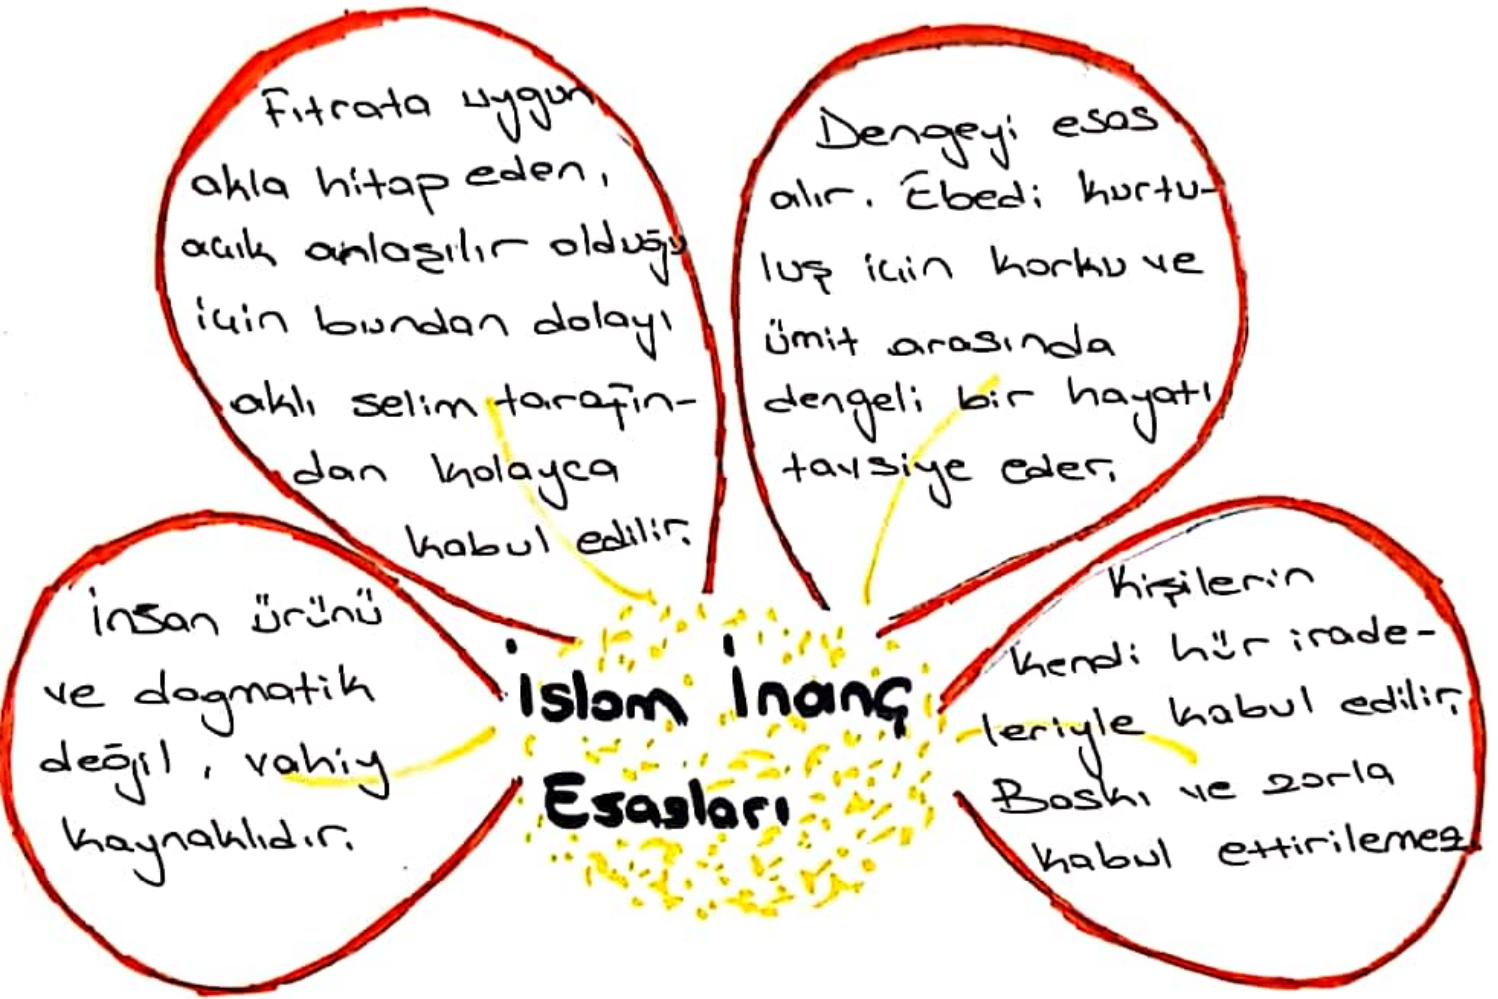 Fıtrata uygun
akla hitap eden,
açık anlaşılır olduğu
için bundan dolayı
aklı selim tarafın-
dan kolayca
kabul edilir.
Dengeyi esas
alır. Ebedi kurtu-
luş için korku ve
ümit arasında
dengeli bir hayatı
tavsiye eder.
İnsan ürünü
ve dogmatik
değil, vahiy
kaynaklıdır.
Kişilerin
kendi hür irade-
leriyle kabul edilir,
Baskı ve zorla
kabul ettirilemez
İslam İnanç
Esasları